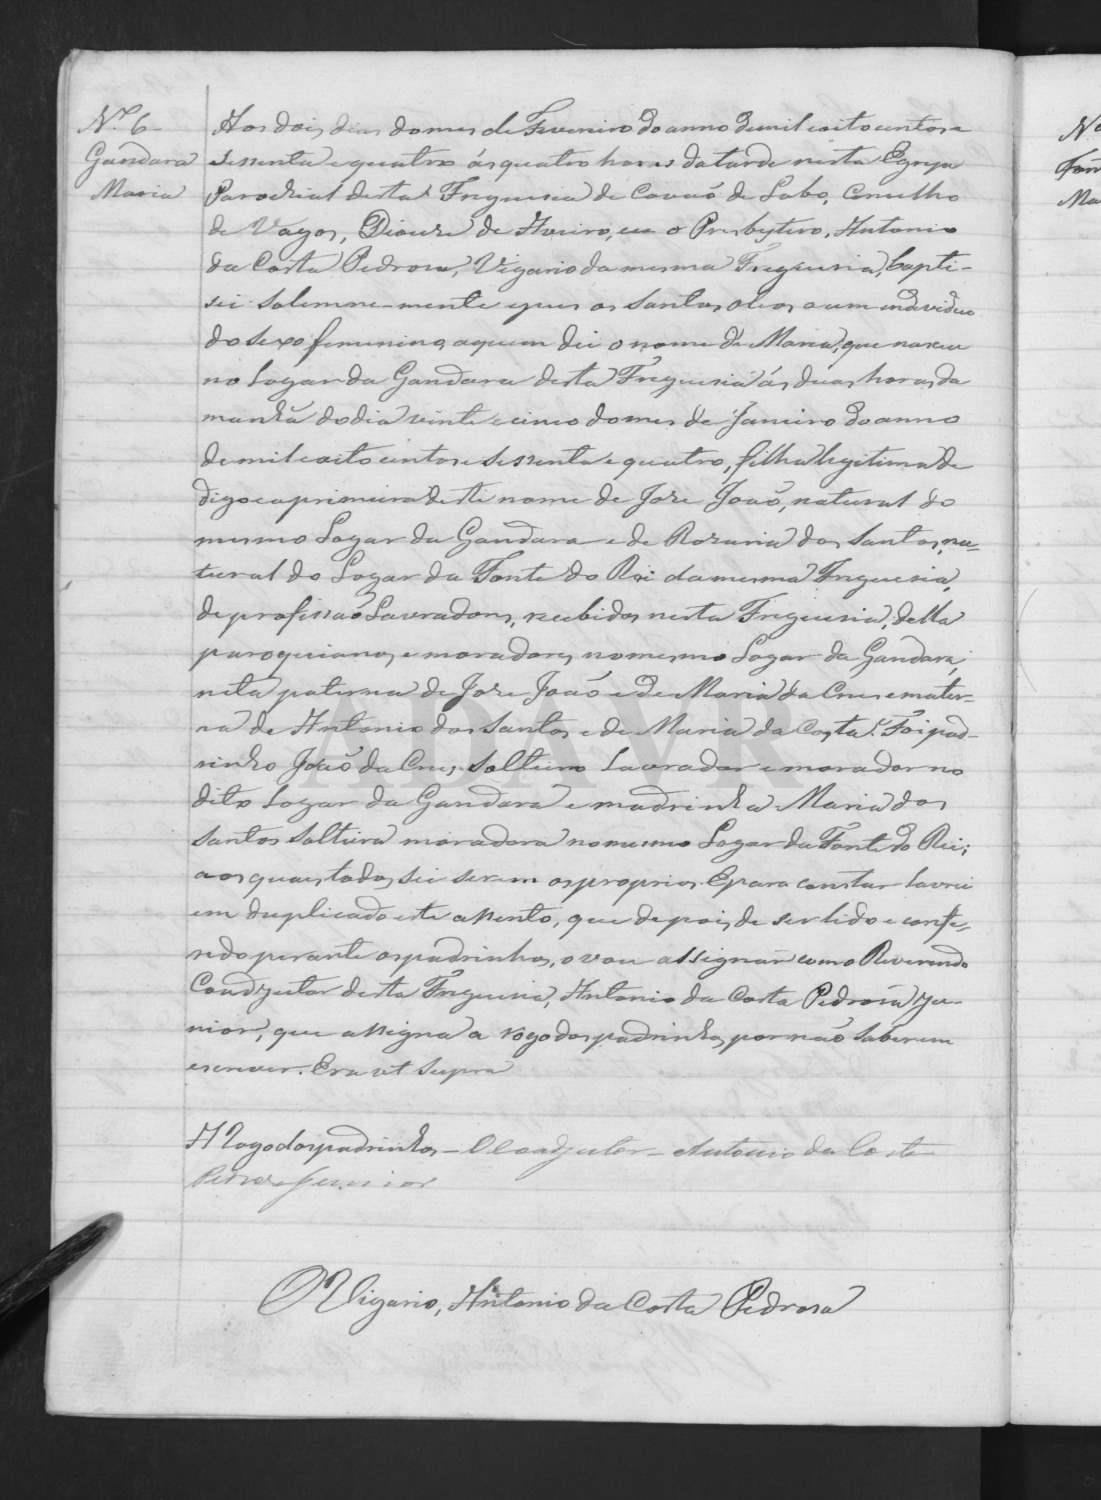 N.º 6
Gandara
Maria
Aos dois dias do mes de Fevereiro do anno de mil e oito centos e
sessenta e quatro ás quatro horas da tarde nesta Egreja
Parochial desta Freguesia de Covaõ de Lobo, Concelho
de Vagos, Diocese de Aveiro, eu o Presbytero, Antonio
da Costa Pedrosa, Vigario da mesma Freguesia, bapti-
sei solemne-mente e pus os santos oleos a um individuo
do sexo femenino, a quem dei o nome de Maria, que nasceu
no Logar da Gandara desta Freguesia ás duas horas da
manhã do dia vinte e cinco do mes de Janeiro do anno
de mil e oito centos e sessenta e quatro, filha legitima de
digo e a primeira deste nome de Jose Joaõ, natural do
mesmo Logar da Gandara e de Rozaria dos Santos, na-
tural do Logar da Fonte do Rei da mesma Freguesia,
de profissaõ Lavradores, recebidos nesta Freguesia, della
paroquianos, e moradores, no mesmo Logar da Gandara,
neta paterna de Jose Joaõ e de Maria da Crus e mater-
na de Antonio dos Santos e de Maria da Costa. Foi pad-
rinho Joaõ da Crus solteiro Lavrador e morador no
dito Logar da Gandara e madrinha Maria dos
santos solteira moradora no mesmo Logar da Fonte do Rei;
aos quaes todos sei serem os proprios. E para constar lavrei
em duplicado este assento, que depois de ser lido e confe-
rido perante os padrinhos, o vou assignar com o Reverendo
Coadjutor desta Freguesia, Antonio da Costa Pedrosa Ju-
nior, que assigna a rogo dos padrinhos, por naõ saberem
escrever. Era ut supra
A Rogo dos padrinhos - O Coadjutor - Antonio da Costa
Pedrosa Junior
O Vigario, Antonio da Costa Pedrosa
ADAVR